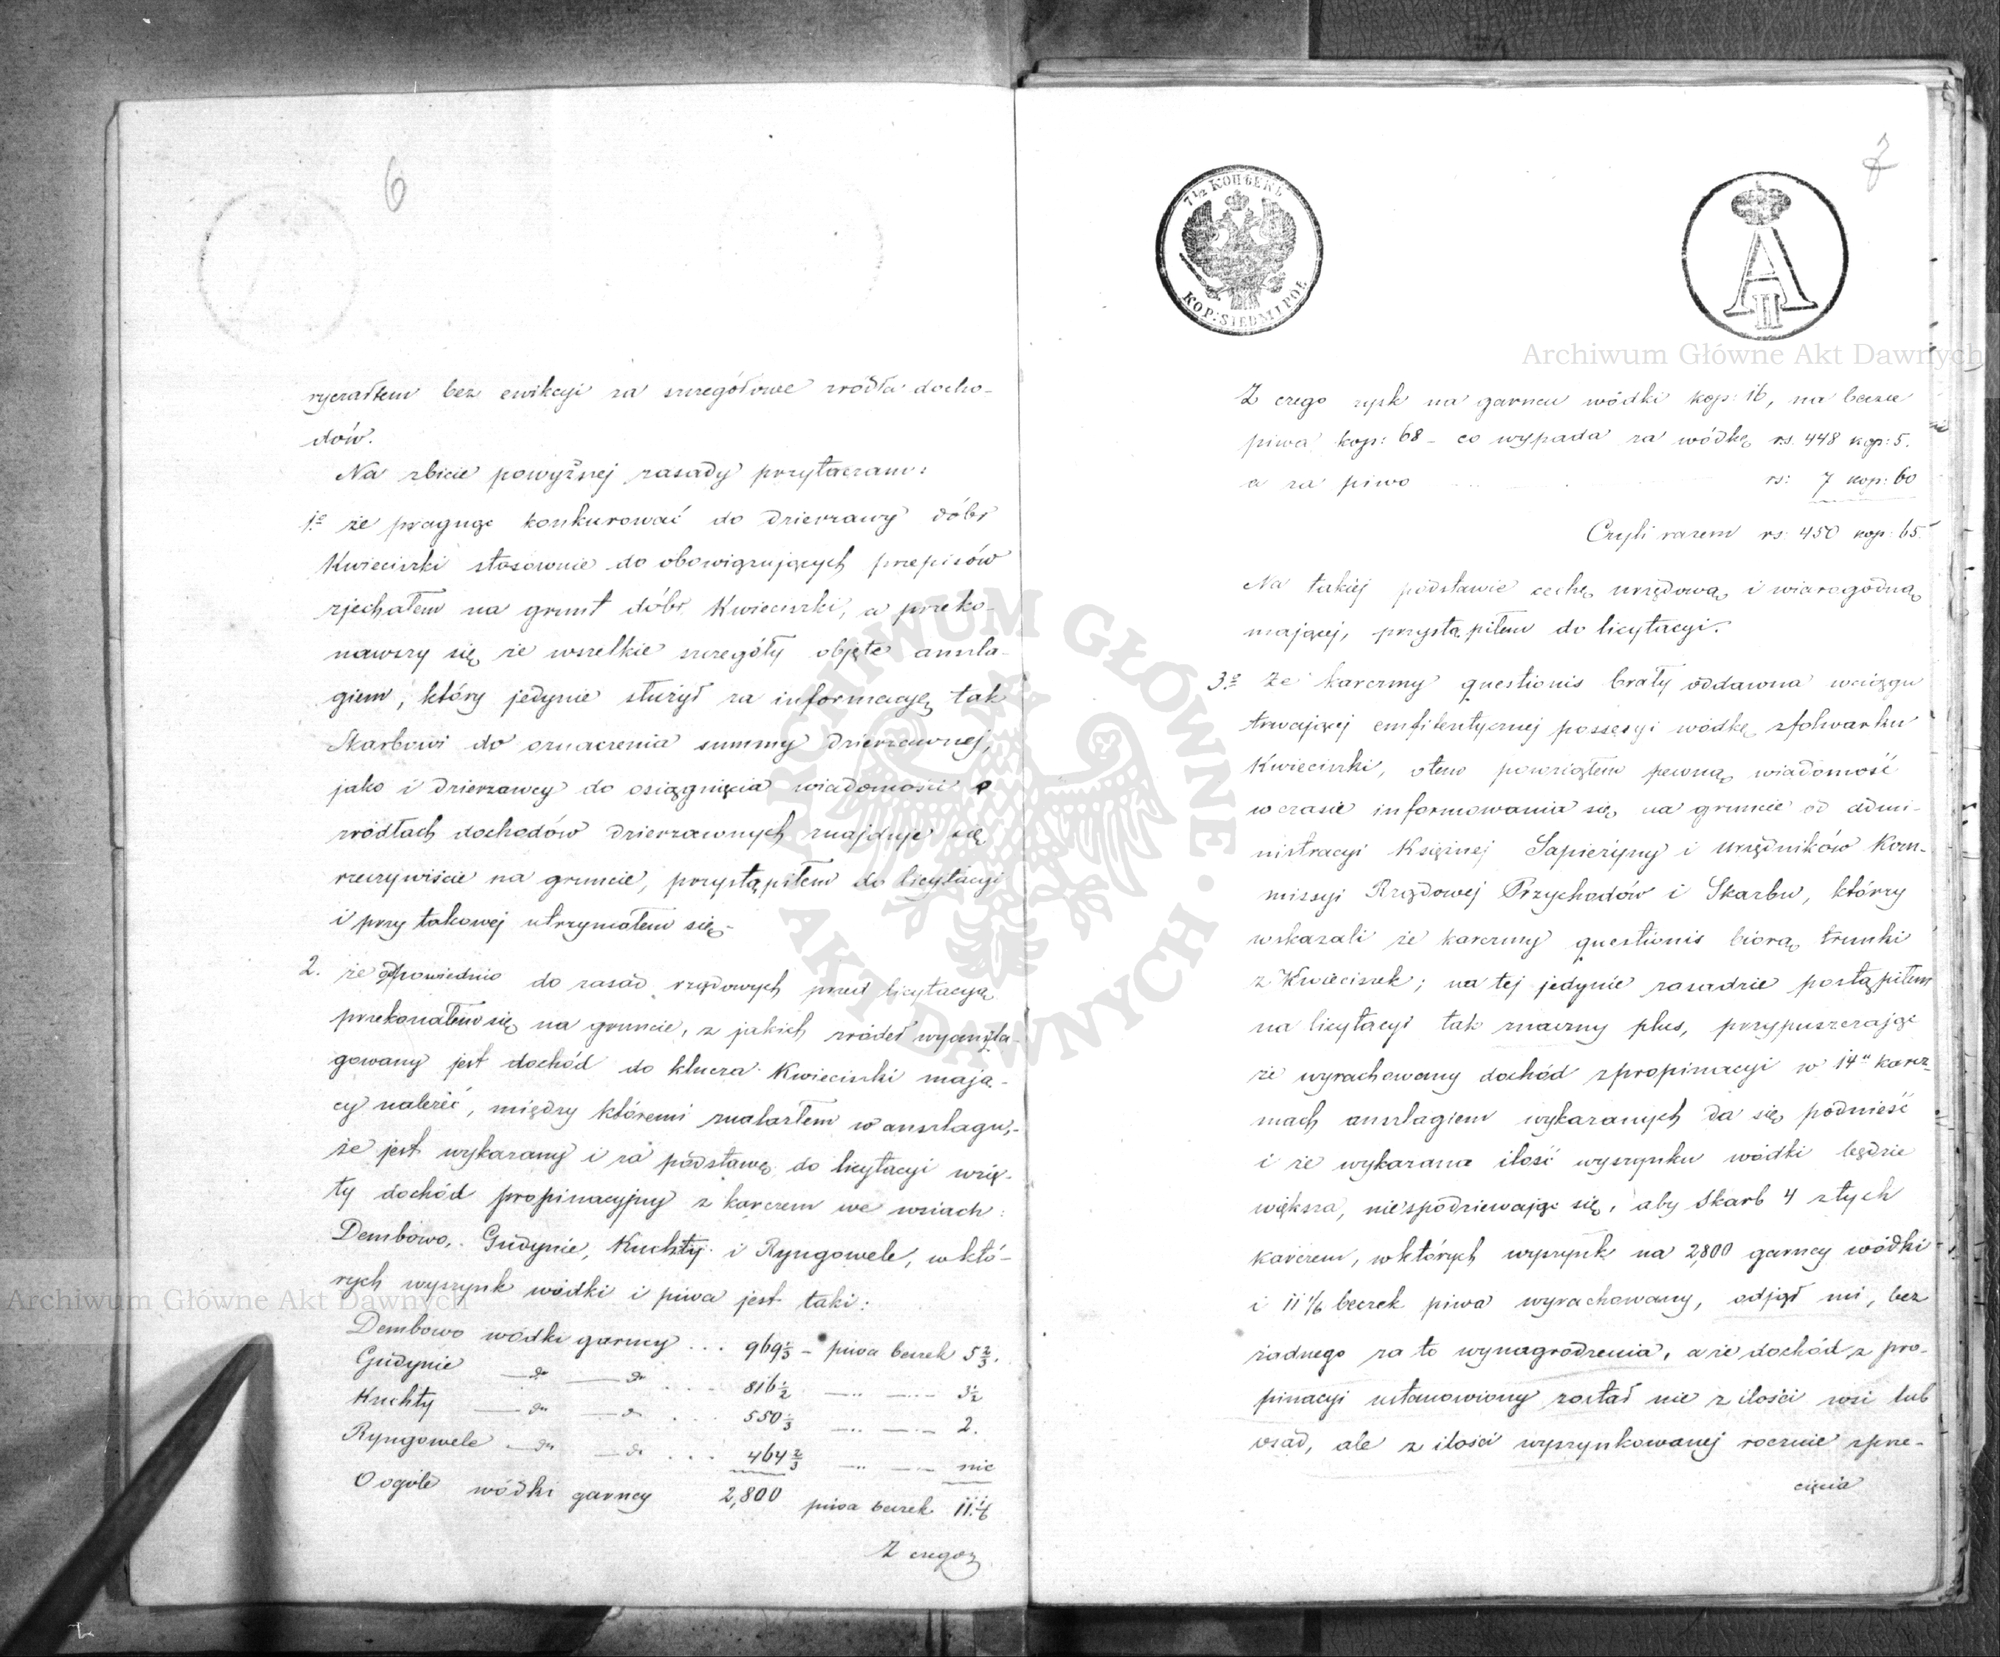 6
ryczałtem bez ewikcyi za szczegółowe zródła docho-
dów.
Na zbicie powyższej zasady przytaczam:
1º że pragnąc konkurować do dzierzawy dóbr
Kwieciszki stosownie do obowiązujących przepisów
zjechałem na grunt dóbr Kwieciszki, a przeko-
nawszy się że wszelkie szczegóły objęte anszla-
giem, który jedynie służył za informacyę tak
Skarbowi do oznaczenia summy dzierzawnej,
jako i dzierzawcy do osiągnięcia wiadomości o
zródłach dochodów dzierzawnych znajduje się
rzeczywiście na gruncie, przystąpiłem do licytacyi
i przy takowej utrzymałem się.
2. że odpowiednio do zasad rządowych przed licytacyą
przekonałem się na gruncie, z jakich zródeł wyanszla-
gowany jest dochód do klucza Kwieciszki mają-
cy należeć, między któremi znalazłem w anszlagu,
że jest wykazany i za podstawę do licytacyi wzię-
ty dochód propinacyjny z karczem we wsiach:
Dembowo, Gudynie, Kuchty i Ryngowele, w któ-
rych wyszynk wódki i piwa jest taki:
Dembowo wódki garncy ... 969⅓ – piwa beczek 5⅔.
Gudynie — do — do .... 816½ —..— —..— 3½
Kuchty — do — do .... 550⅓ —..— —..— 2.
Ryngowele — do — do .... 464⅔ —..— —..— nic
Ogóle wódki garncy 2,800 piwa beczek 11.⅙
Z czego
7
7½ КОПѢЕКЪ
KOP: SIEDM I PÓŁ
A II
Z czego zysk na garncu wódki kop: 16, na beczce
piwa kop: 68 – co wypada za wódkę rs. 448 kop: 5.
a za piwo rs: 7 kop: 60
Czyli razem rs. 450 kop: 65
Na takiéj podstawie cechę urzędową i wiarogodną
mającej, przystąpiłem do licytacyi.
3º Że karczmy questionis brały oddawna wciągu
trwającej emfiteutycznej possesyi wódkę z folwarku
Kwieciszki, otem powziąłem pewną wiadomość
w czasie informowania się na gruncie od admi-
nistracyi Księżnej Sapieżyny i urzędników Kom-
missyi Rządowej Przychodów i Skarbu, którzy
wskazali że karczmy questionis biorą trunki
z Kwieciszek; na tej jedynie zasadzie postąpiłem
na licytacyi tak znaczny plus, przypuszczając
że wyrachowany dochód z propinacyi w 14u karcz-
mach anszlagiem wykazanych da się podnieść
i że wykazana ilość wyszynku wódki będzie
większa, niespodziewając się, aby Skarb 4 z tych
karczem, w których wyszynk na 2,800 garncy wódki
i 11⅙ beczek piwa wyrachowany, odjął mi, bez
żadnego za to wynagrodzenia, a że dochód z pro-
pinacyi ustanowiony został nie z ilości wsi lub
osad, ale z ilości wyszynkowanej rocznie
Archiwum Główne Akt Dawnych
Archiwum Główne Akt Dawnych
ARCHIWUM GŁÓWNE AKT DAWNYCH